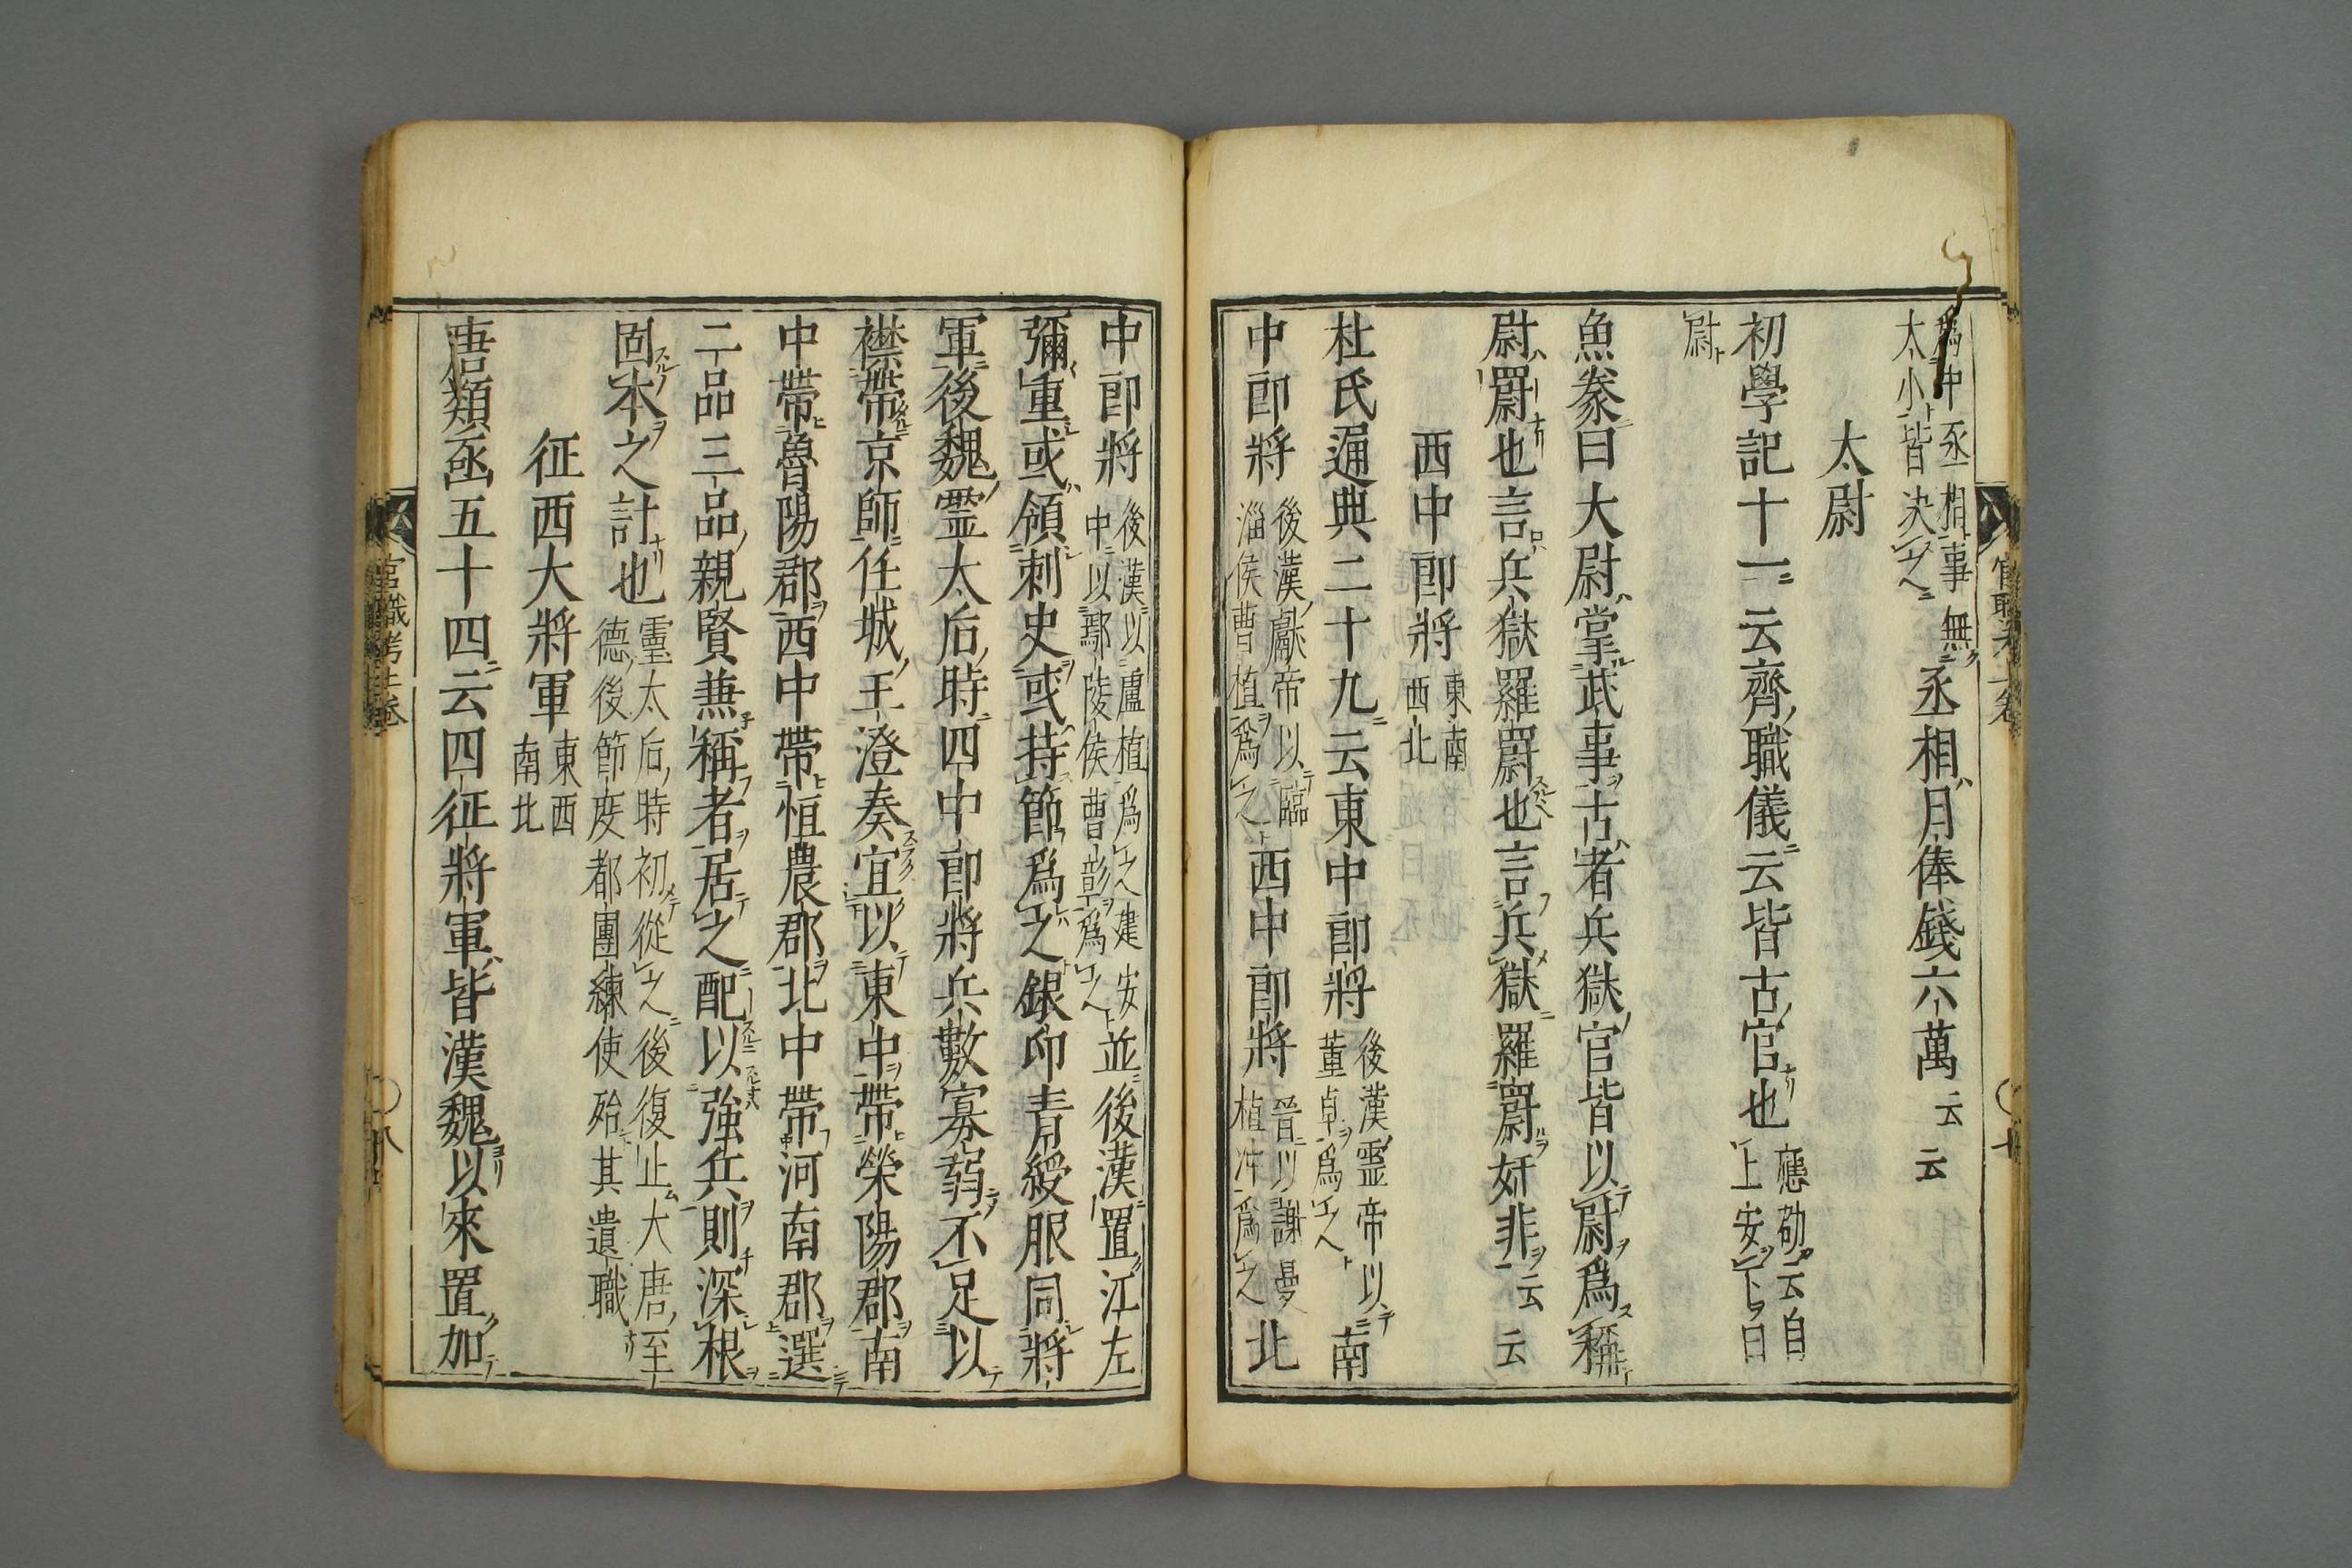 爲中丞相事無
太小皆决之 丞相月俸錢六萬云云
太尉
初學記十一云齊職儀云皆古官也 應劭云自
上安下曰
尉
魚豢曰大尉掌武事古者兵獄官皆以尉爲稱
尉罻也言兵獄羅罻也言兵獄羅罻奸非云云
西中郎將 東南
西北
杜氏通典二十九云東中郎將 後漢靈帝以
董卓爲之 南
中郎將 後漢獻帝以臨
淄侯曹植爲之 西中郎將 晉以謝曼
植冲爲之 北
中郎將 後漢以盧植爲之建安
中以鄢陵侯曹彰爲之 並後漢置江左
彌重或領刺史或持節爲之銀印青綬服同將
軍後魏靈太后時四中郎將兵數寡弱不足以
襟帶京師任城王澄奏宜以東中帶榮陽郡南
中帶魯陽郡西中帶恒農郡北中帶河南郡選
二品三品親賢兼稱者居之配以強兵則深根
固本之計也 靈太后時初從之後復止大唐至
德後節度都團練使殆其遺職
征西大將軍 東西
南北
唐類函五十四云四征將軍皆漢魏以來置加
官職考上卷